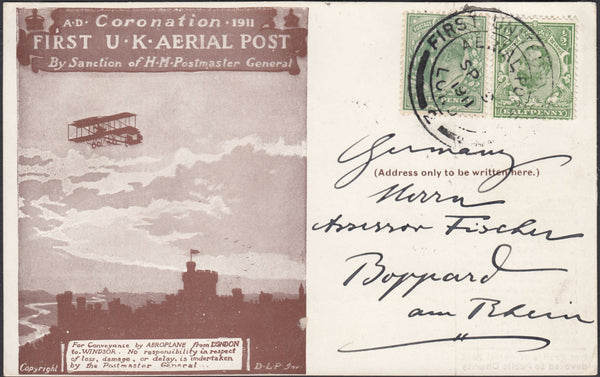 A·D· Coronation · 1911
FIRST U·K·AERIAL POST
By Sanction of H·M·Postmaster General
For Conveyance by AEROPLANE from LONDON
to WINDSOR. No responsibility in respect
of loss, damage, or delay, is undertaken
by the Postmaster General.
Copyright
D·L·P· Inv.
FIRST
HALFPENNY
Germany
(Address only to be written here.)
Herrn
Assessor Fischer
Boppard
am Rhein